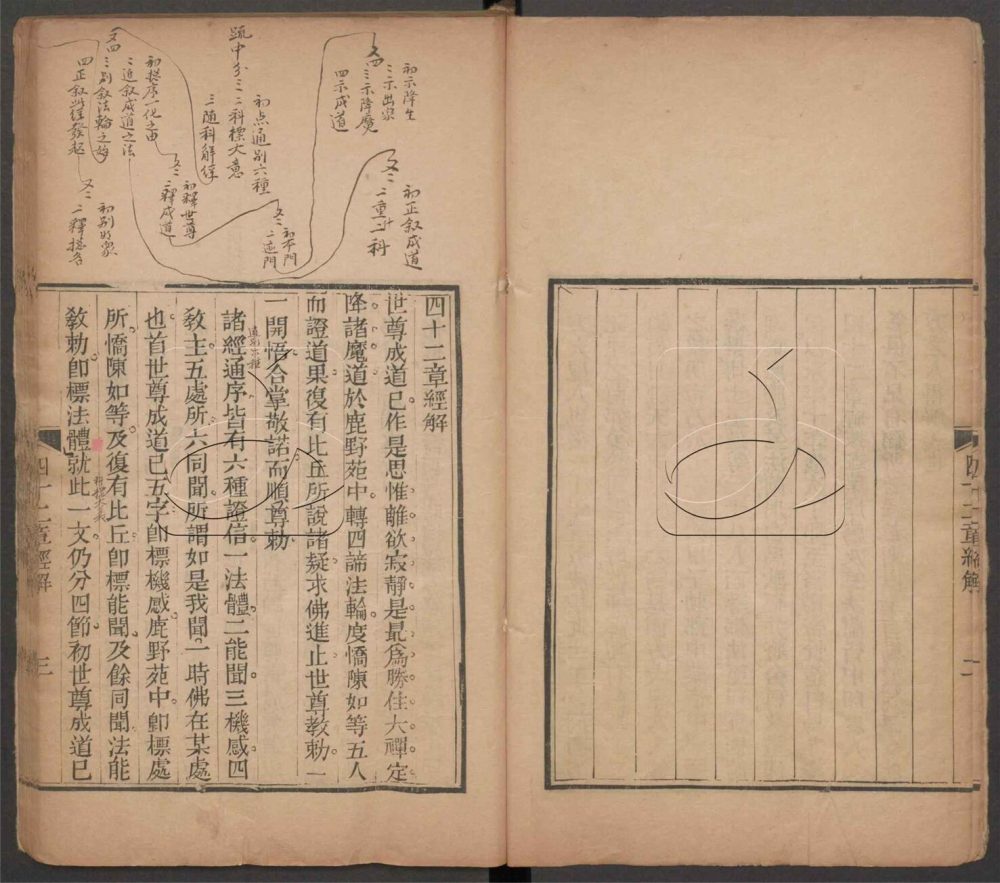 四十二章經解
一
四十二章經解
世尊成道已作是思惟離欲寂靜是最爲勝住大禪定
降諸魔道於鹿野苑中轉四諦法輪度憍陳如等五人
而證道果復有比丘所說諸疑求佛進止世尊教勅一
一開悟合掌敬諾而順尊勅
諸經通序皆有六種證信一法體二能聞三機感四
敎主五處所六同聞所謂如是我聞一時佛在某處
也首世尊成道已五字卽標機感鹿野苑中卽標處
所憍陳如等及復有比丘卽標能聞及餘同聞法能
敎勅卽標法體就此一文仍分四節初世尊成道已
四十二章經解
三
初示降生
二示出家
三示降魔
四示成道
初正叙成道
二重二科
疏中分二
初点通別六種
二科標大意
三随科解経
初本門
二迹門
初釋世尊
二釋成道
又四
初総序一化之由
二近叙成道之法
三別叙法輪之始
四正叙此経發起
又二
初別明衆
二釋総告